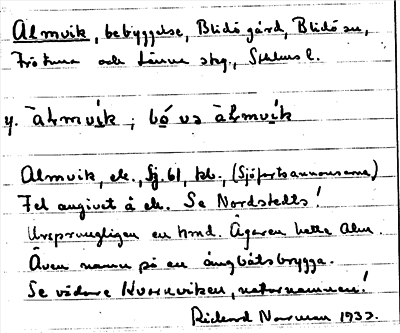 Almvik, bebyggelse, Blidö gård, Blidö sn,
Frötuna och Länna skg., Sthlms l.
y. àlmvík, bó us àlmvík
Almvik, ek., Sj. 61, kb., (Sjöfartsannonserna)
Fel angivet å ek. Se Nordstedts!
Ursprungligen en hmd. Ägaren hette Alm.
Även namn på en ångbåtsbrygga.
Se vidare Kvarnviken, naturnamnen!
Rickard Norman 1933.